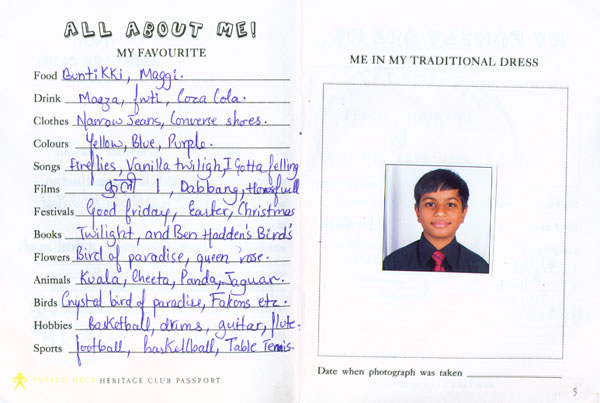 ALL ABOUT ME!
MY FAVOURITE
Food Buntikki, Maggi.
Drink Maaza, fruti, Coza Cola.
Clothes Narrow Jeans, Converse shoes.
Colours Yellow, Blue, Purple.
Songs fireflies, Vanilla twiligh, I Gotta felling
Films कुली 1, Dabbang, Housfull
Festivals Good friday, Easter, Christmas
Books Twilight, and Ben Hadden's Bird's
Flowers Bird of paradise, queen rose.
Animals Kuala, Cheeta, Panda, Jaguar.
Birds Crystal bird of paradise, Fakons etc.
Hobbies Basketball, drums, guitar, flute.
Sports football, baskellball, Table Tennis.
INTACH HECS HERITAGE CLUB PASSPORT
ME IN MY TRADITIONAL DRESS
Date when photograph was taken
5